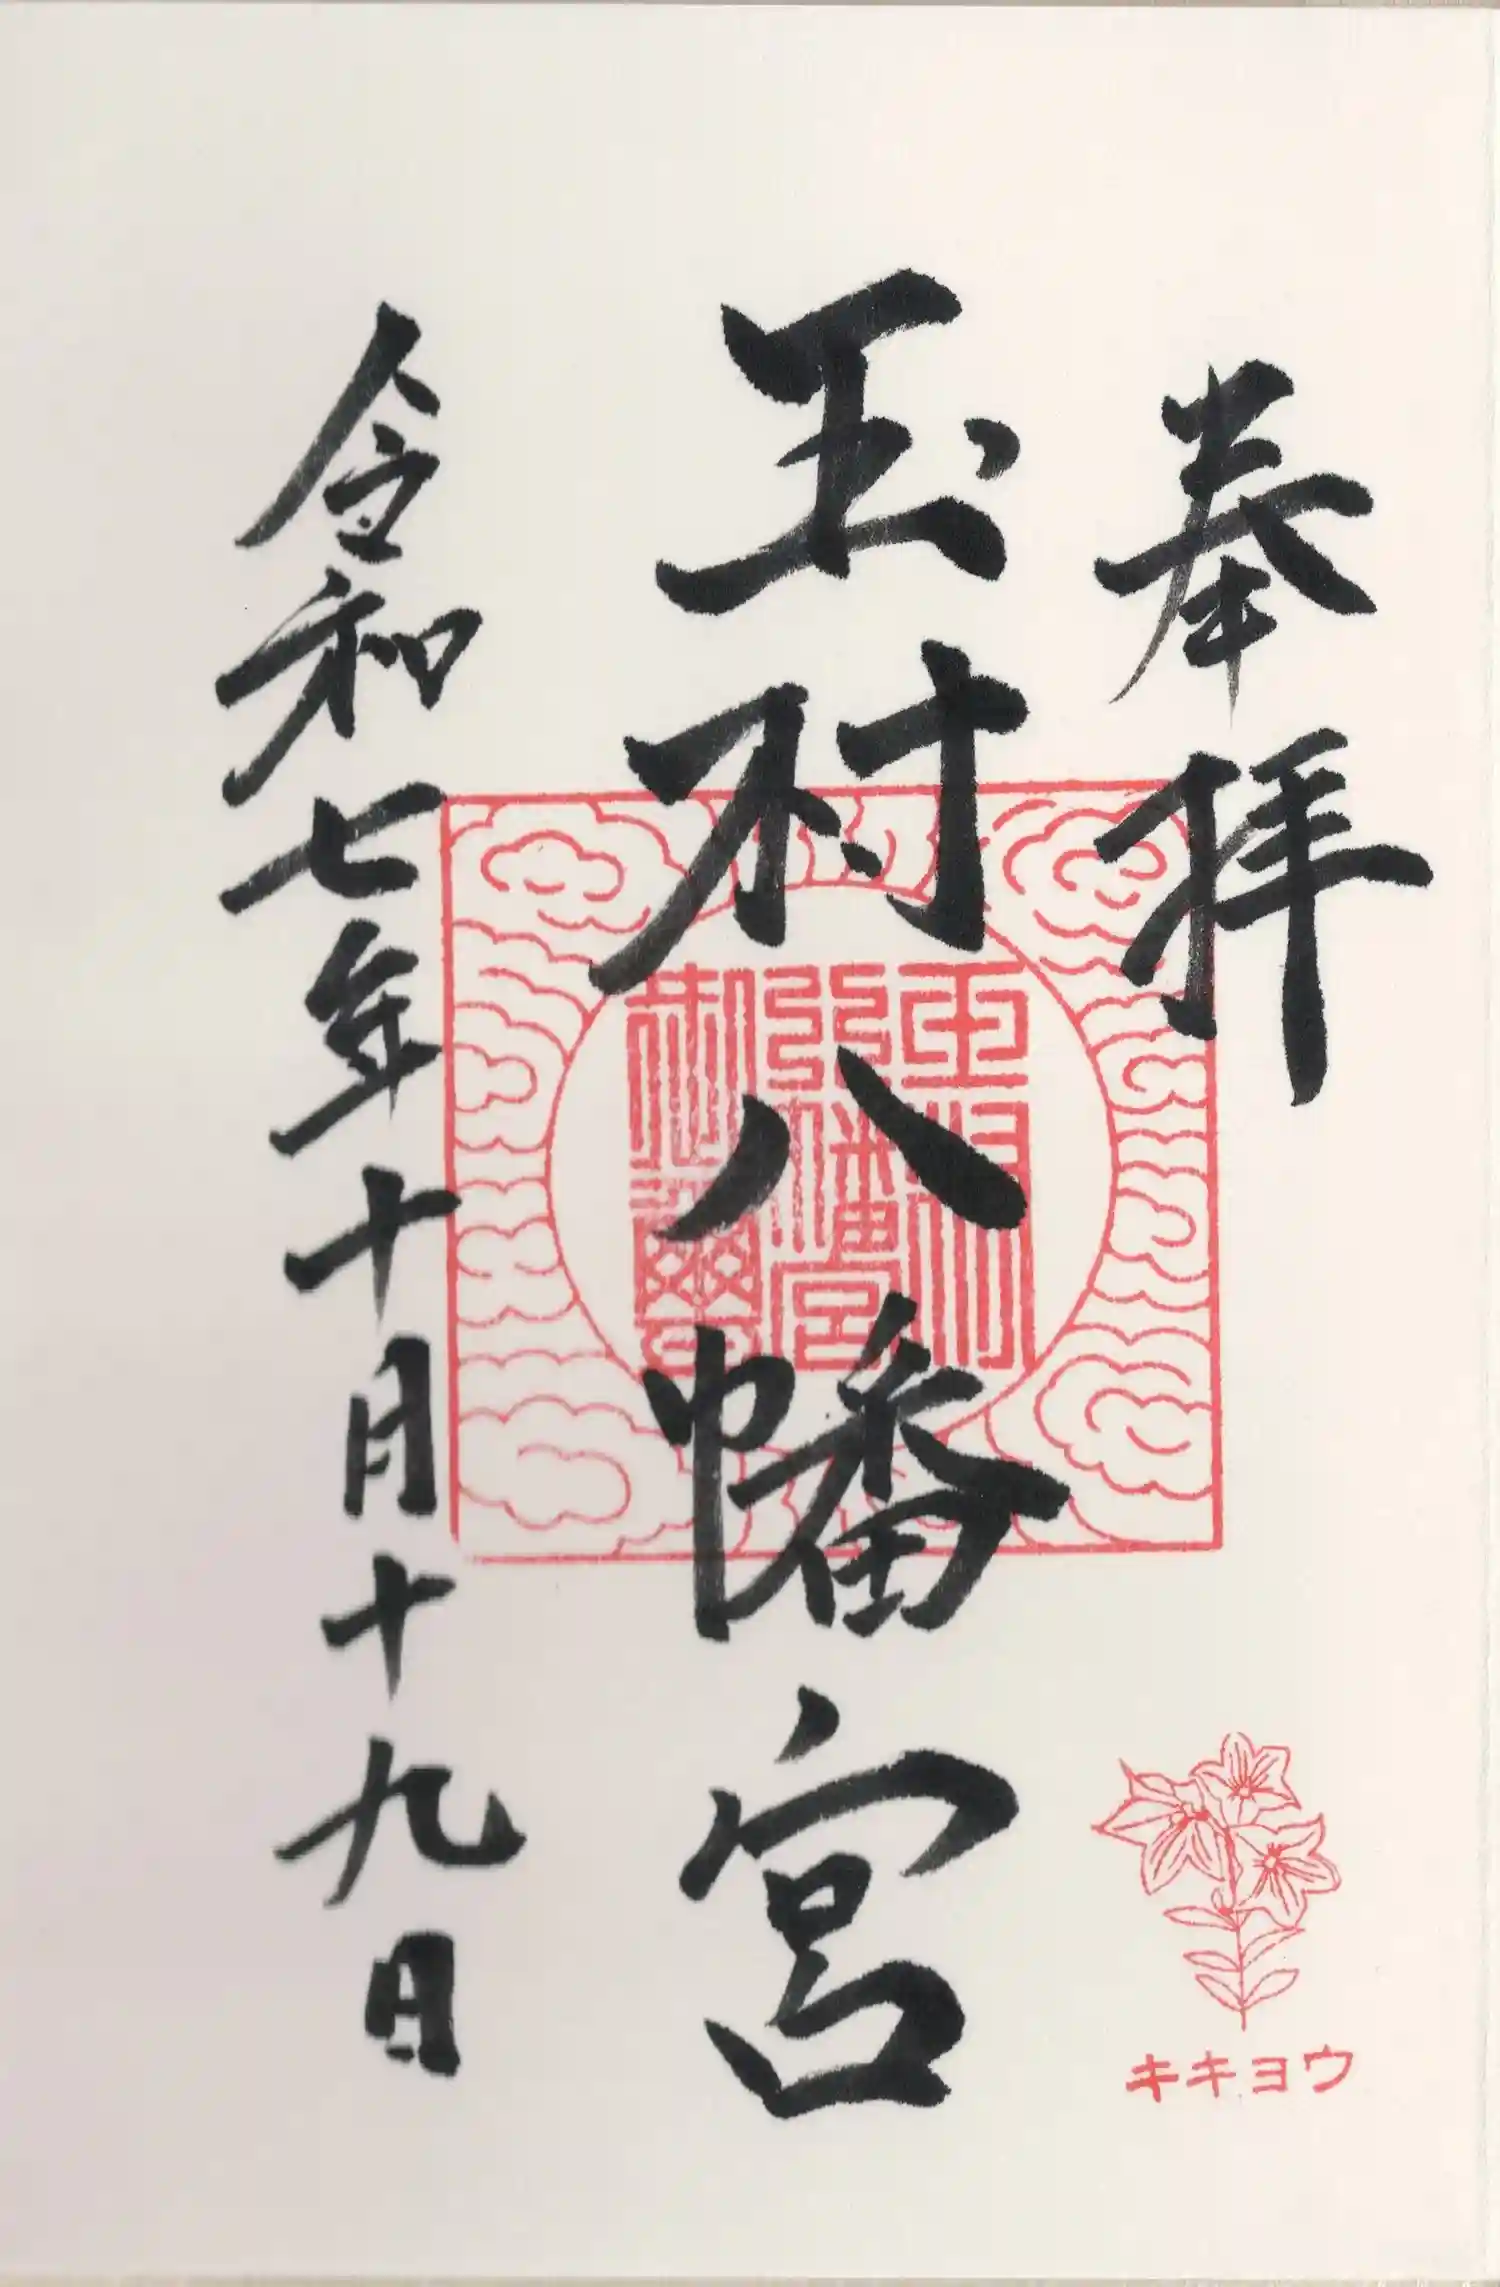 奉拝
玉村八幡宮
玉村
八幡宮
御璽
令和七年十月十九日
キキョウ